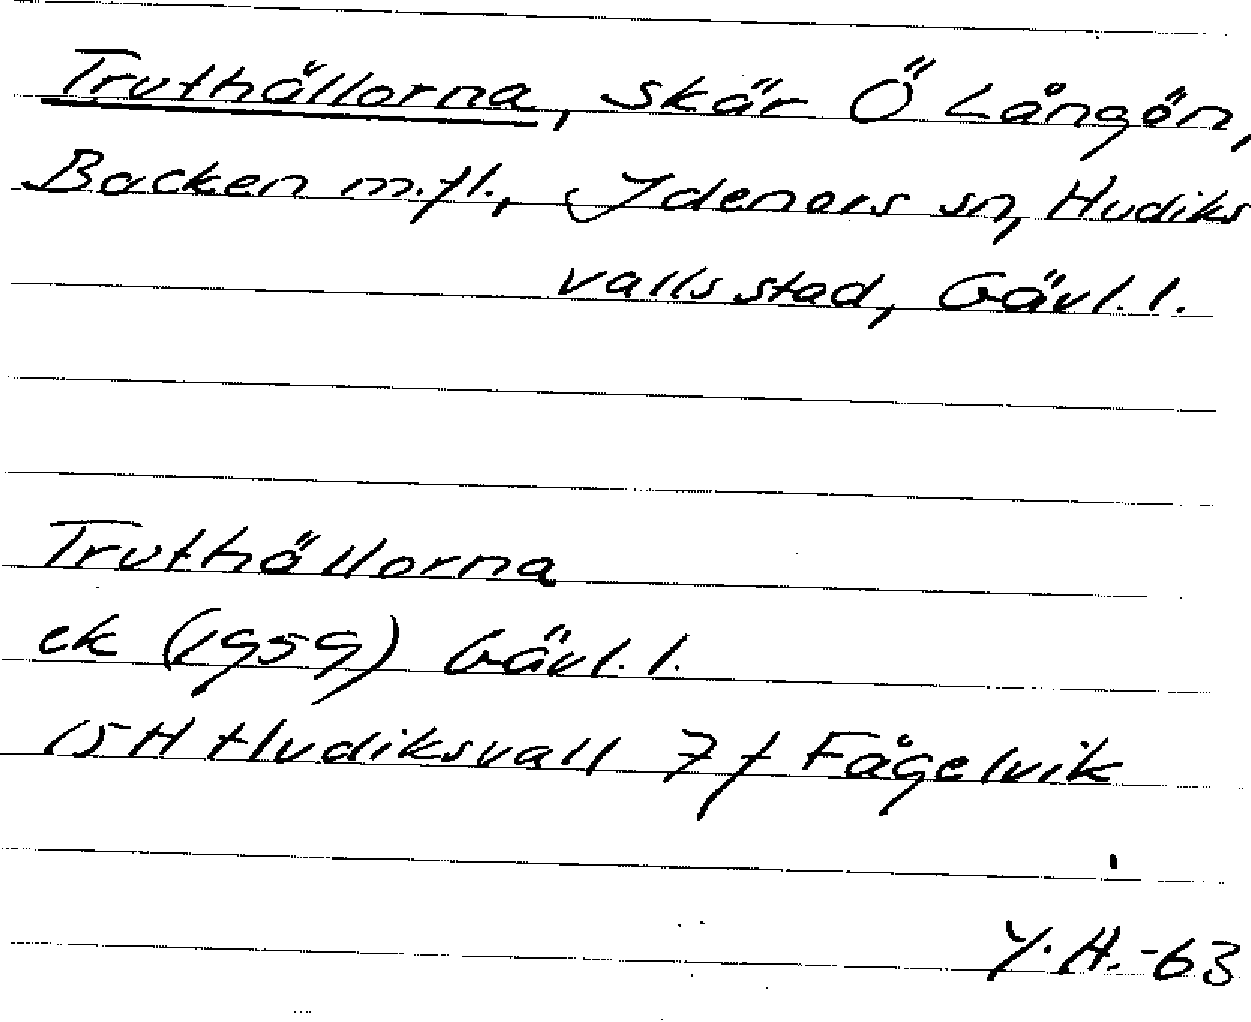 Truthällorna, skär Ö Långön,
Backen m.fl., Idenors sn, Hudiks
valls stad, Gävl. l.
Truthällorna
ek (1959) Gävl. l.
15H Hudiksvall 7f Fågelvik
Y.H. -63